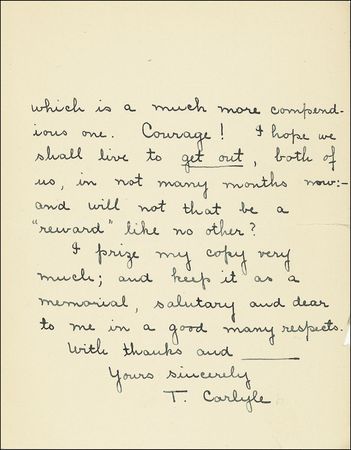 which is a much more compend-
ious one. Courage! I hope we
shall live to get out, both of
us, in not many months now:-
and will not that be a
"reward" like no other?
I prize my copy very
much; and keep it as a
memorial, salutary and dear
to me in a good many respects.
With thanks and ____
Yours sincerely
T. Carlyle